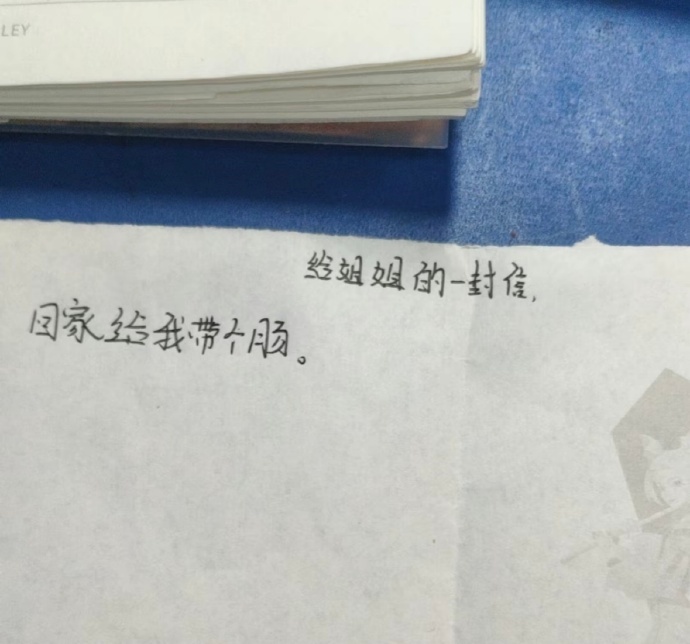 LEY
给姐姐的一封信,
回家给我带个肠。